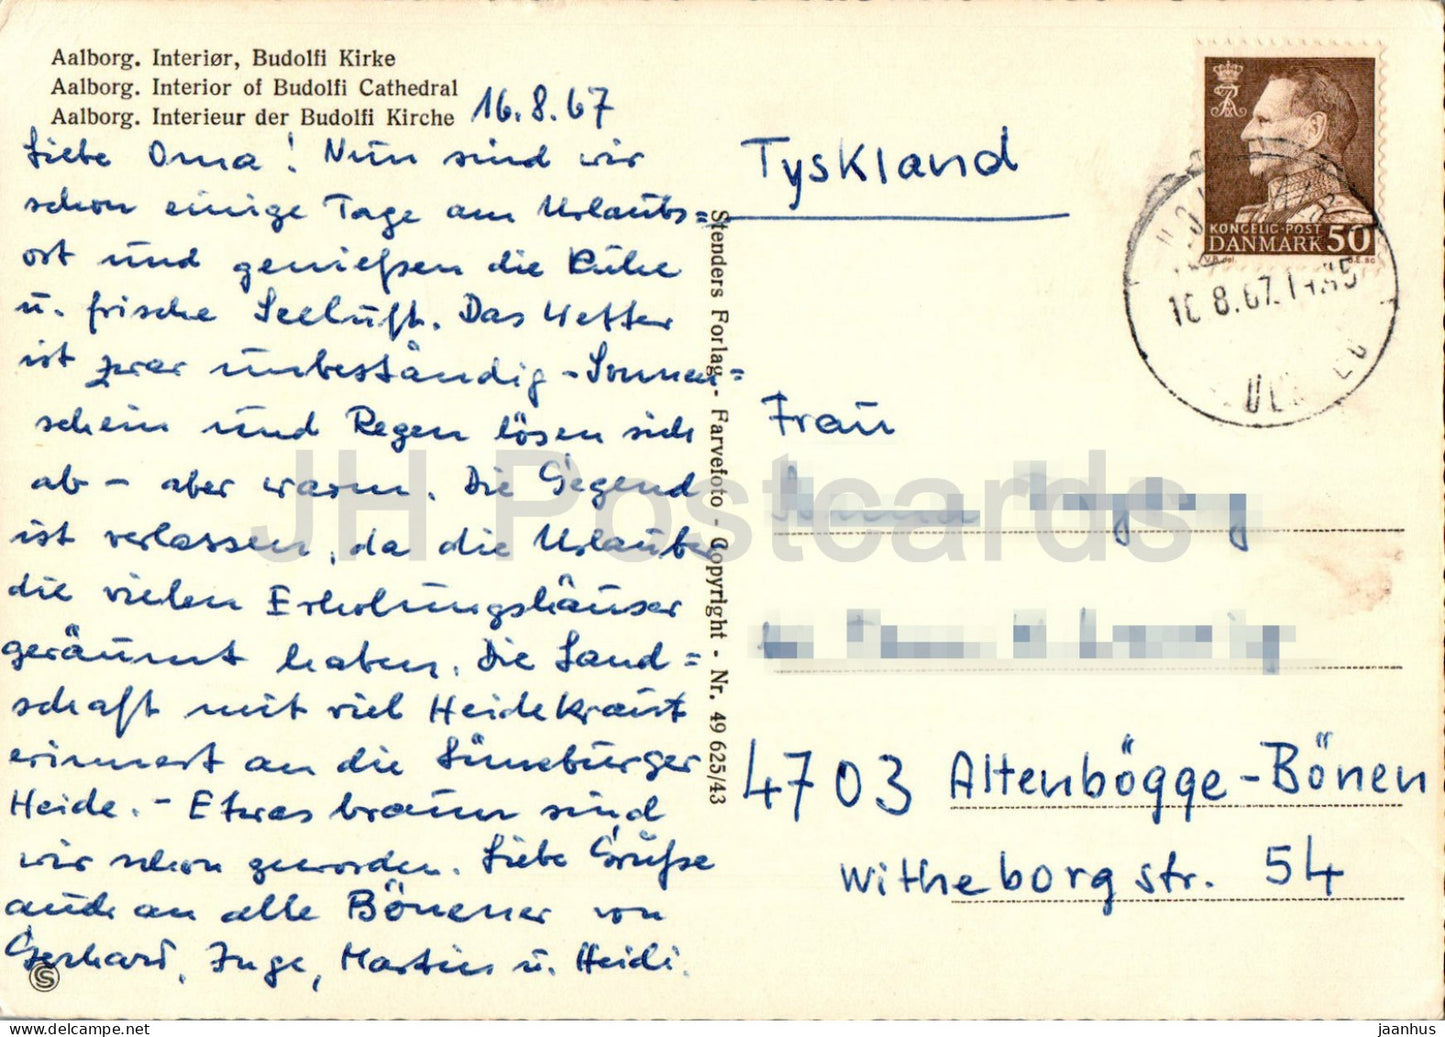 Aalborg. Interiør, Budolfi Kirke
Aalborg. Interior of Budolfi Cathedral
Aalborg. Interieur der Budolfi Kirche
16.8.67
Liebe Oma! Nun sind wir
schon einige Tage am Urlaubs=
ort und genießen die Ruhe
u. frische Seeluft. Das Wetter
ist zwar unbeständig - Sonnen=
schein und Regen lösen sich
ab - aber warm. Die Gegend
ist verlassen, da die Urlauber
die vielen Erholungshäuser
geräumt haben. Die Land=
schaft mit viel Heidekraut
erinnert an die Lüneburger
Heide. - Etwas braun sind
wir schon geworden. Liebe Grüße
auch an alle Bönener von
Gerhard, Inge, Martin u. Heidi.
S
Stenders Forlag - Farvefoto - Copyright - Nr. 49 625/43
Tyskland
KONGELIG·POST
DANMARK 50
V.B.del.
8.67.
Frau
4703 Altenbögge-Bönen
Witheborgstr. 54
JH Postcards
jaanhus